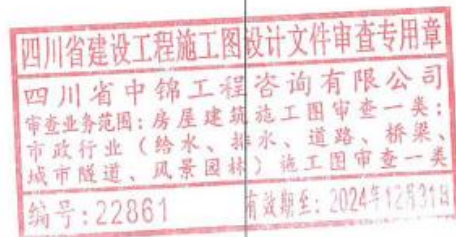 四川省建设工程施工图设计文件审查专用章
四川省中锦工程咨询有限公司
审查业务范围:房屋建筑施工图审查一类;
市政行业(给水、排水、道路、桥梁、
城市隧道、风景园林)施工图审查一类
编号:22861 有效期至:2024年12月31日